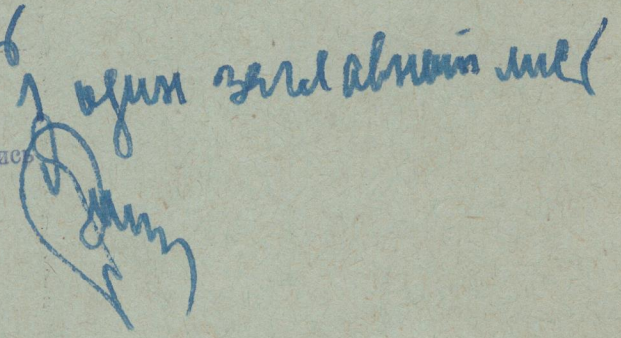 один заглавный лис
ись